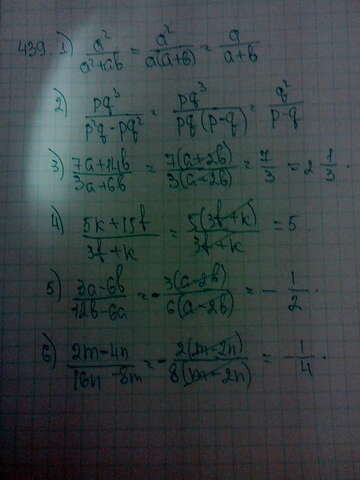 439. 1) a²/(a²+ab) = a²/(a(a+b)) = a/(a+b)
2) pq³/(p²q-pq²) = pq³/(pq(p-q)) = q²/(p-q)
3) (7a+14b)/(3a+6b) = 7(a+2b)/(3(a+2b)) = 7/3 = 2 1/3.
4) (5k+15t)/(3t+k) = 5(3t+k)/(3t+k) = 5.
5) (3a-6b)/(12b-6a) = -3(a-2b)/(6(a-2b)) = -1/2.
6) (2m-4n)/(16n-8m) = -2(m-2n)/(8(m-2n)) = -1/4.